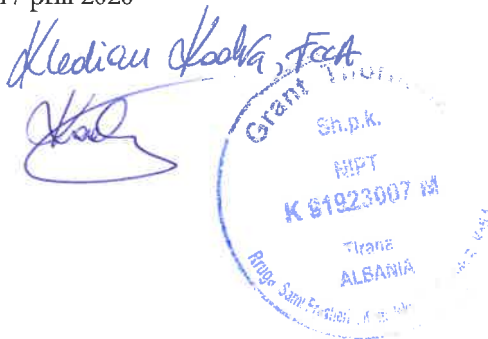 17 prill 2020
Kledian Kodra, FCCA
Grant
Sh.p.k.
NIPT
K 91923007 M
Tirana
ALBANIA
Rruga Sami Frashëri